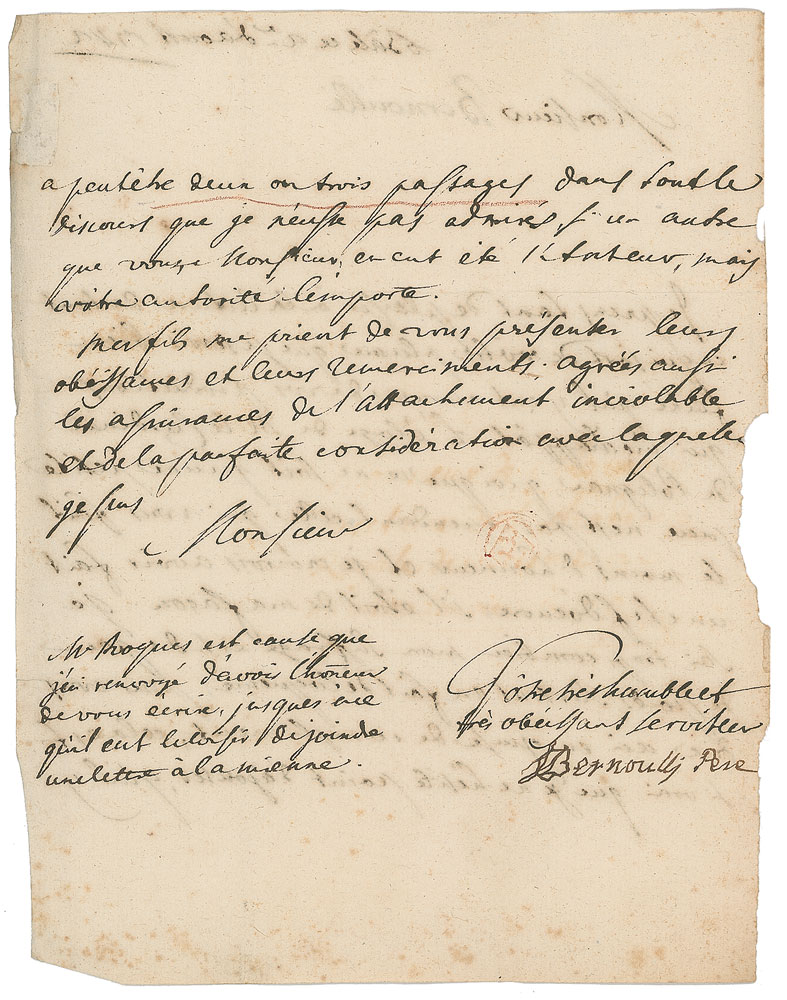 a peutêtre deux ou trois passages dans tout le
discours que je n'eusse pas admirés, si un autre
que vous, Monsieur, en eut été l'Auteur, mais
vôtre autorité l'emporte.
Mes fils me prient de vous présenter leurs
obéissances et leurs remerciments; agréés aussi
les assurances de l'attachement inviolable
et de la parfaite considération avec laquelle
je suis
Monsieur
Mr Roques est cause que
j'ai renvoyé d'avoir l'honneur
de vous écrire, jusques à ce
qu'il eut le loisir de joindre
une lettre à la mienne.
Vôtre très humble et
très obéissant serviteur
JBernoulli Pere